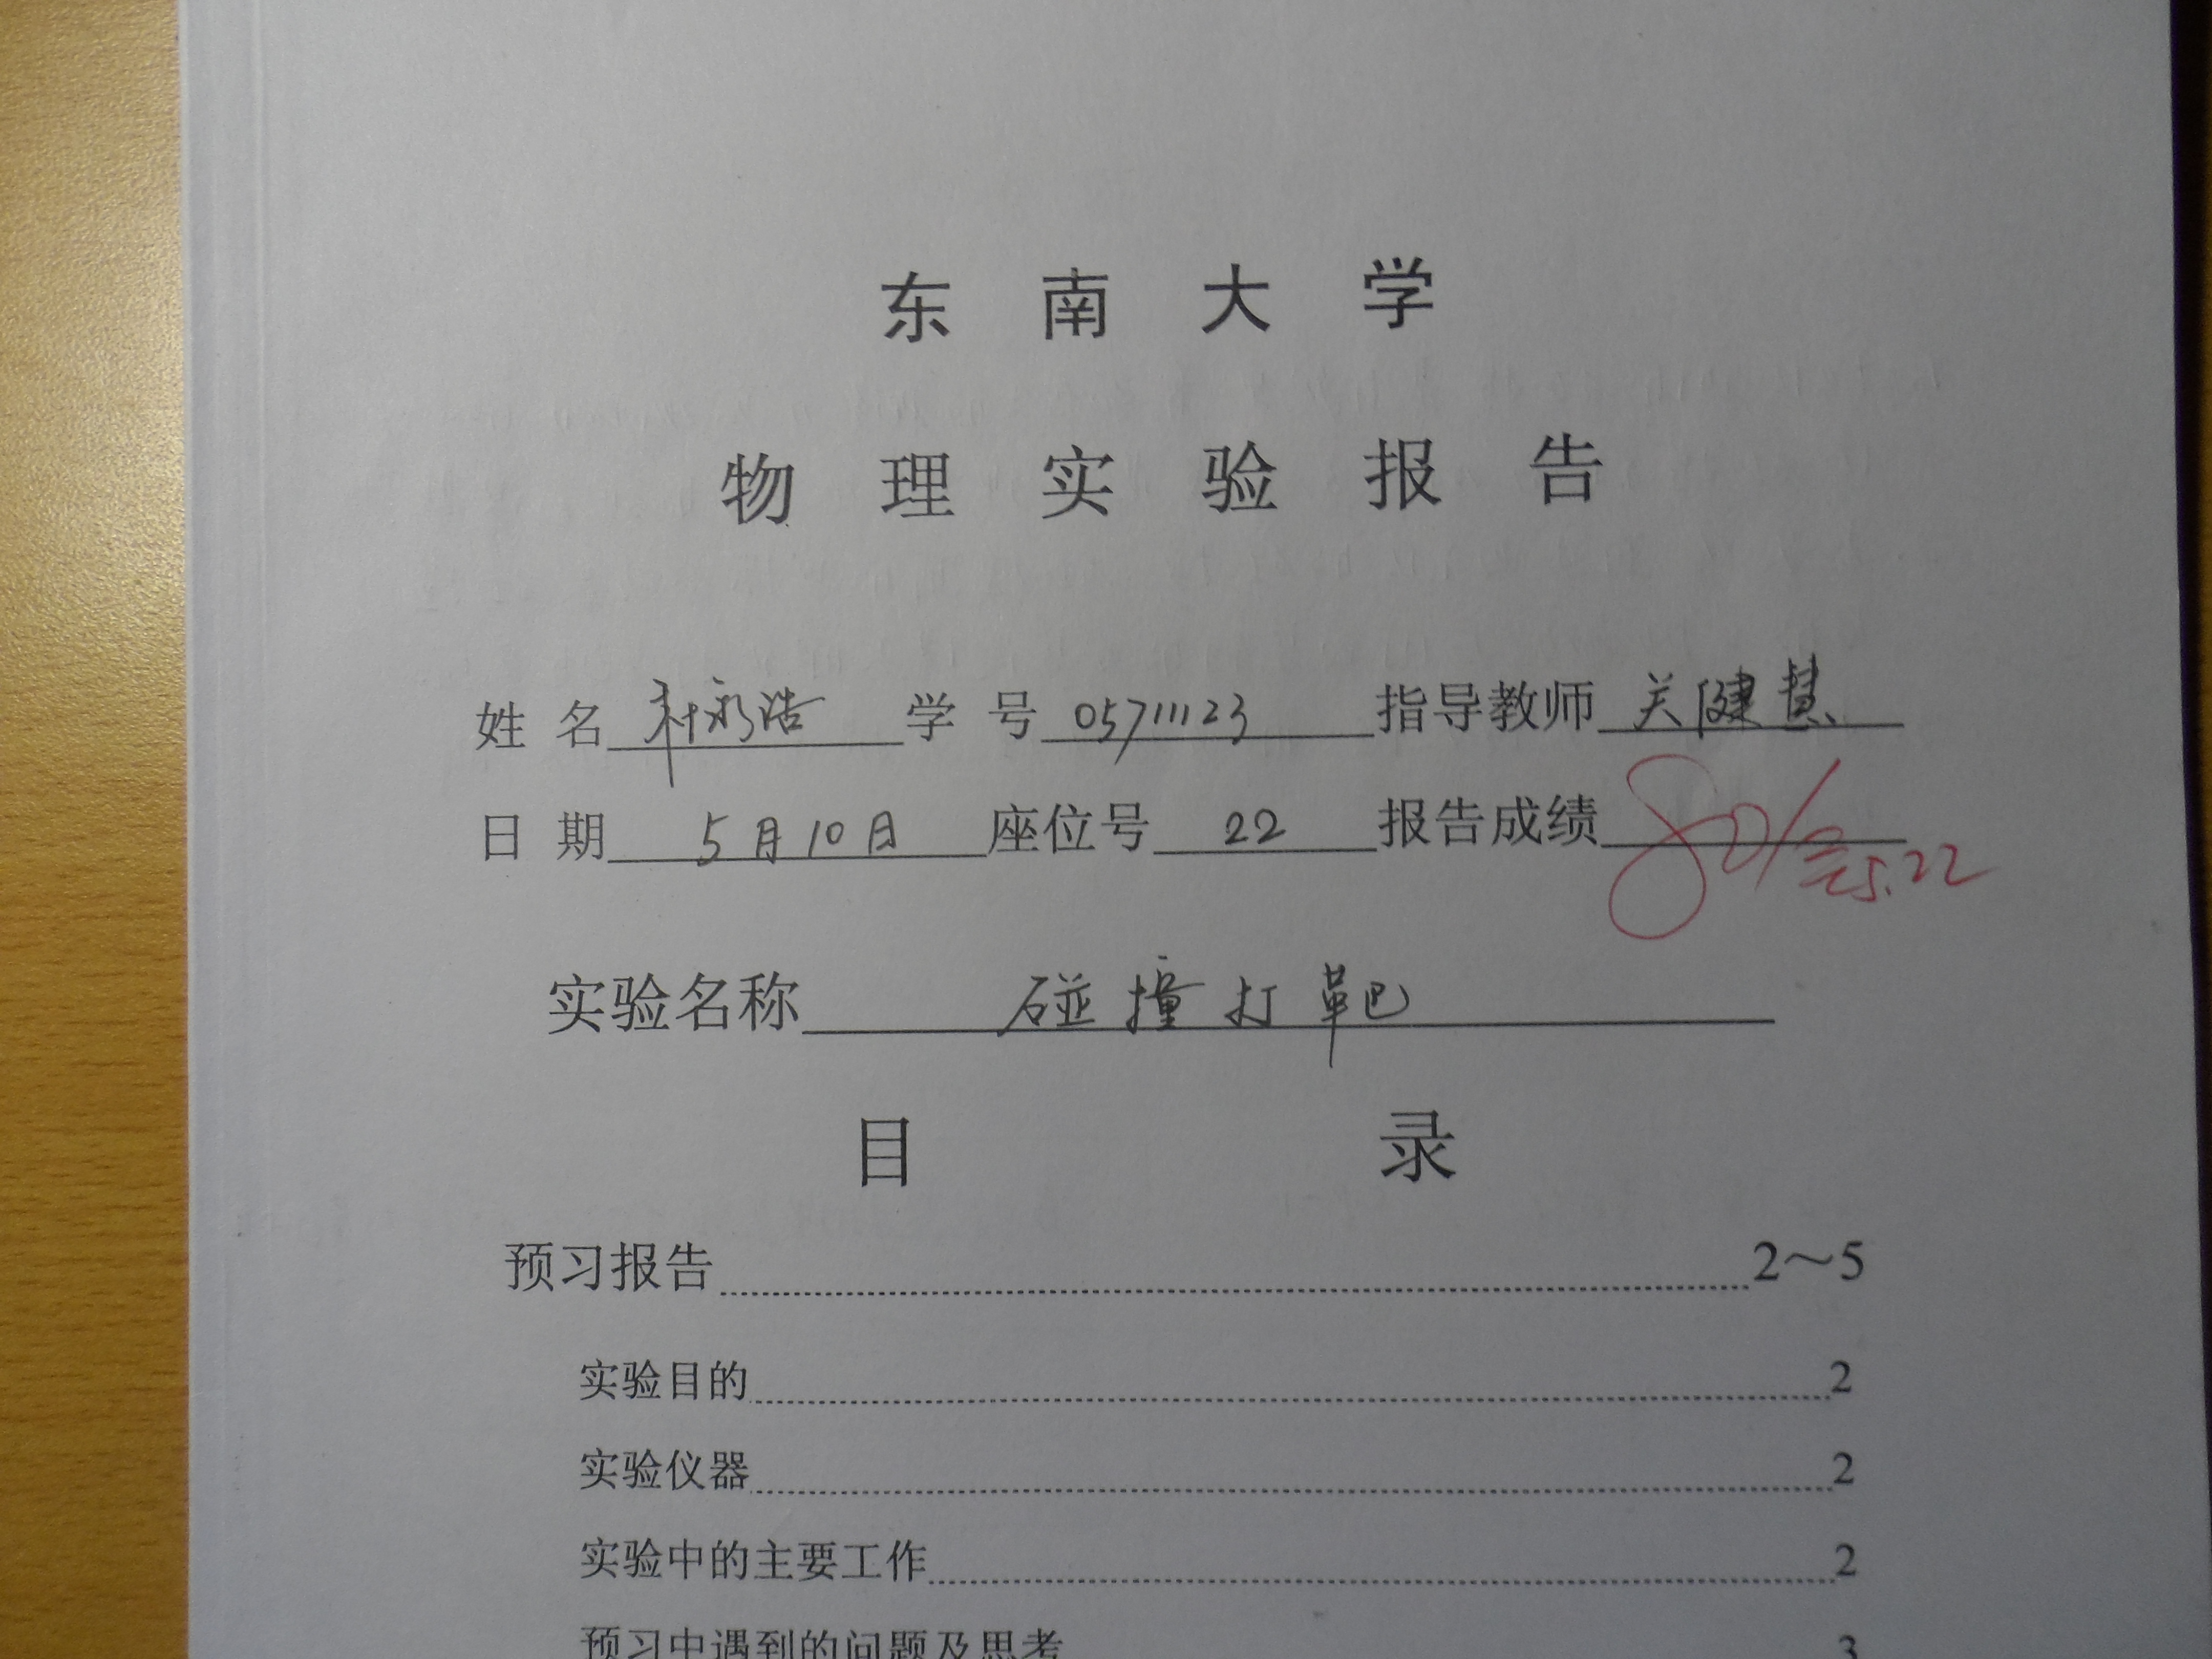 东南大学
物理实验报告
姓名 永浩 学号 05711123 指导教师 关健慧
日期 5月10日 座位号 22 报告成绩
5.22
实验名称 碰撞打靶
目录
预习报告 2～5
实验目的 2
实验仪器 2
实验中的主要工作 2
预习中遇到的问题及思考 3